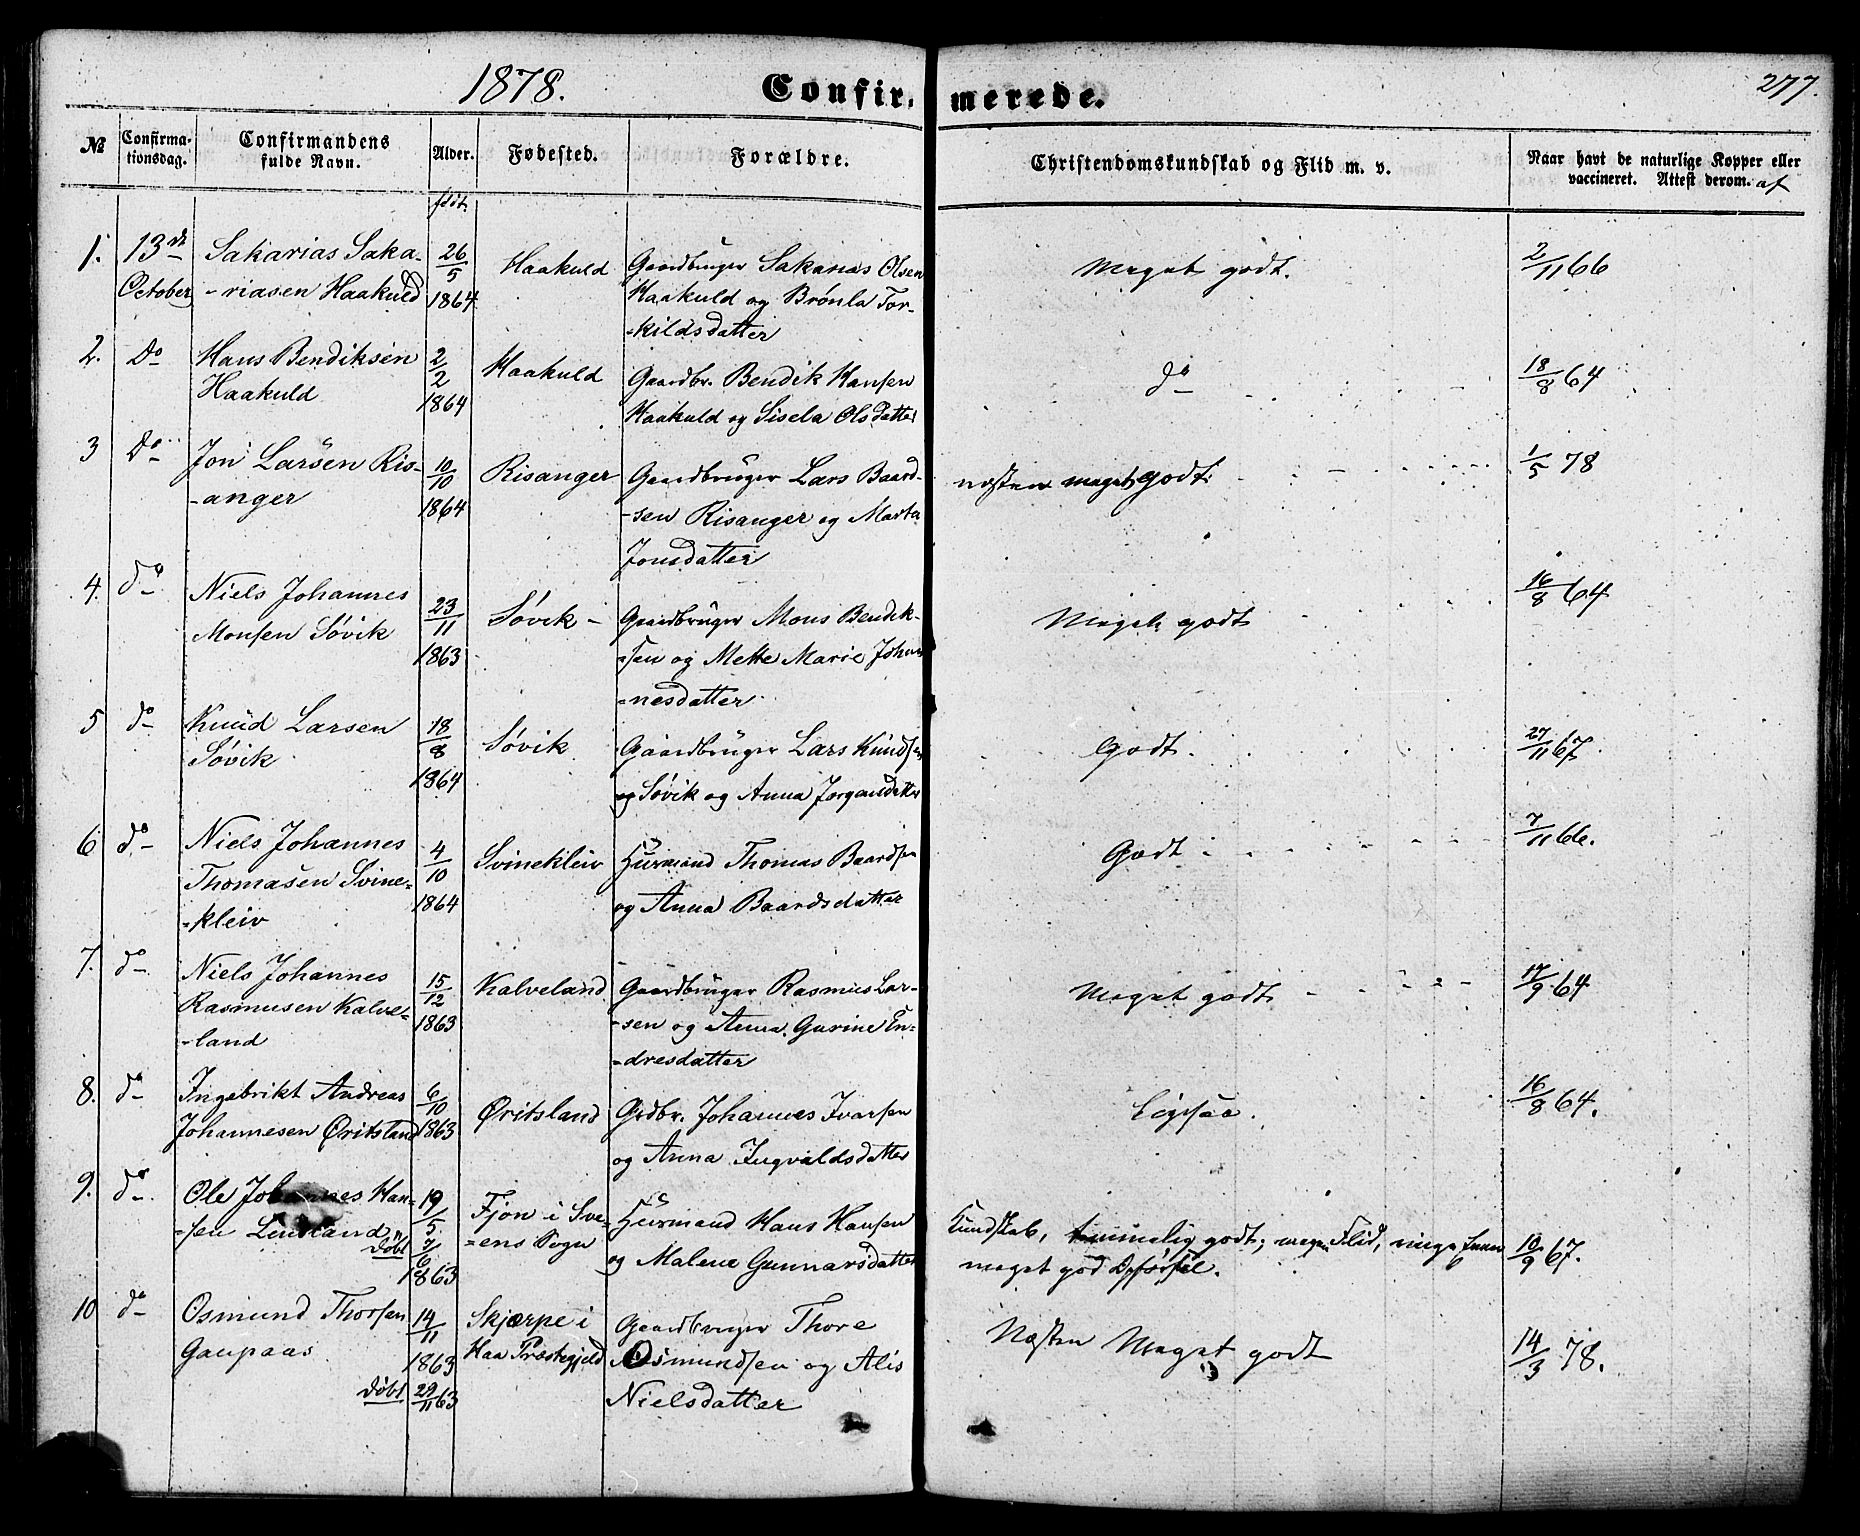 1878. Confir- merede. 277.
№ Confirma-tionsdag. Confirmandens fulde Navn. Alder. Fødested. Forældre. Christendomskundskab og Flid m. v. Naar havt de naturlige Kopper eller vaccineret. Attest derom. af
født.
1. 13de Sakarias Saka- 26/5 Haakuld Gaardbruger Sakarias Olsen Meget godt. 2/11 66
October -riasen Haakuld 1864 Haakuld og Brønla Tor-
-kildsdatter
2. Do Hans Bendiksen 2/2 Haakuld Gaardbr. Bendik Hansen do 18/8 64
Haakuld 1864 Haakuld og Sisela Olsdatter
3 Do Jon Larsen Ris- 10/10 Risanger Gaardbruger Lars Baard- næsten meget godt 1/5 78
-anger 1864 -sen Risanger og Marta
Jonsdatter
4. do Niels Johannes 23/11 Søvik - Gaardbruger Mons Bendik- Meget godt 16/8 64
Monsen Søvik 1863 -sen og Mette Marie Johan
-nesdatter
5 do Knud Larsen 18/8 Søvik Gaardbruger Lars Knudsen Godt. 27/11 67.
Søvik 1864 og Søvik og Anna Jørgansdatter
6 do Niels Johannes 4/10 Svinekleiv Huusmand Thomas Baardsen Godt 7/11 66.
Thomasen Svine- 1864 og Anna Baardsdatter
-kleiv
7. do Niels Johannes 15/12 Kalveland Gaardbruger Rasmus Lar- Meget godt 17/9 64
Rasmusen Kalve- 1863 -sen og Anna Gurine En-
-land -dresdatter
8. do Ingebrikt Andreas 6/10 Øritsland Grdbr. Johannes Ivarsen Ligesaa. 16/8 64.
Johannesen Øritsland 1863 og Anna Ingvaldsdatter
9. do Ole Johannes Han- 19/5 Fjon i Sve- Huusmand Hans Hansen Kundskab, temmelig godt; megen Flid, 10/9 67.
-sen døbt 7/6 1863 -ens Sogn og Malene Gunnarsdatter meget god Opførsel.
10 do Osmund Thorsen 14/11 Skjærpe i Gaardbruger Thore Næsten Meget godt 14/3 78.
Gaupaas 1863 Haa Præstegjeld Osmundsen og Alis
døbt 29/11 63 Nielsdatter